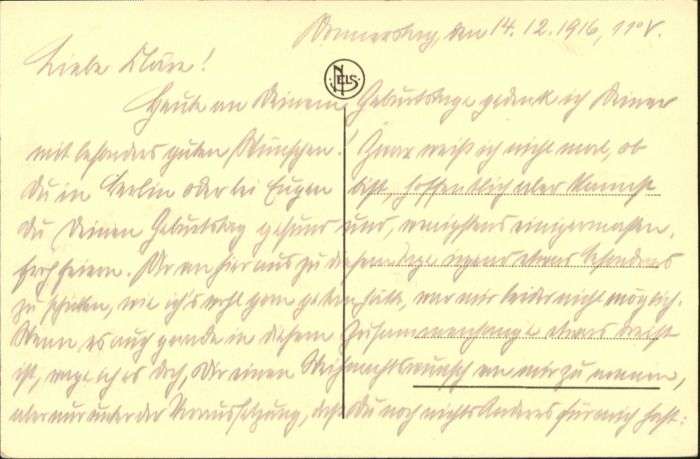 Donnerstag, den 14.12.1916, 11° V.
Liebe Kläre!
NELS
Heute an Deinem Geburtstage gedenk ich Deiner
mit besonders guten Wünschen! Zwar weiß ich nicht mal, ob
Du in Berlin oder bei Eugen bist, hoffentlich aber kannst
Du Deinen Geburtstag gesund und, wenigstens einigermaßen,
froh feiern. Dir von hier aus zu diesem Tage irgend etwas besonderes
zu schicken, wie ich's wohl gern getan hätte, war mir leider nicht möglich.
Wenn es auch gerade in diesem Zusammenhange etwas dreist
ist, wage ich es doch, Dir einen Weihnachtswunsch von mir zu nennen,
aber nur unter der Voraussetzung, daß Du noch nichts Anderes für mich hast: